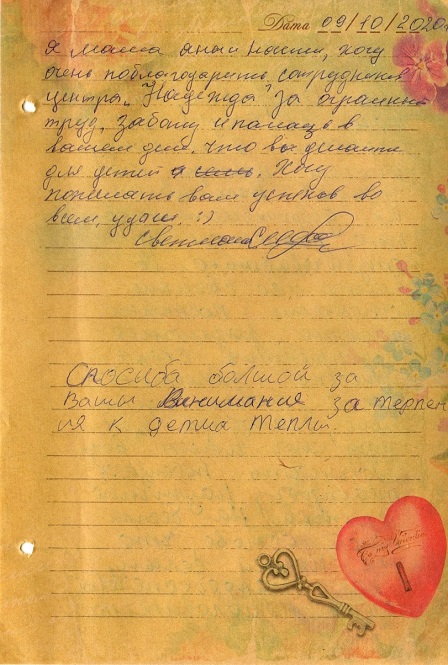 Дата 09/10/2020
Я мама Ани и Насти, хочу
очень поблагодарить сотрудников
центра „Надежда" за огромный
труд, заботу и помощь в
вашем деле, что вы делаете
для детей. Хочу
пожелать вам успехов во
всем, удачи :)
Светлана
Спосиба болшой за
Вашы Внимания за терпен
ия к детиа тепли.